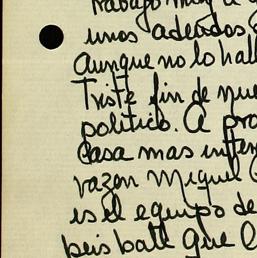 Trabajo muy a
unos adeudos
Aunque no lo hall
Triste fin de nue
politico. A pro
Casa mas infer
razon Miguel
es el equipo de
beis ball que l